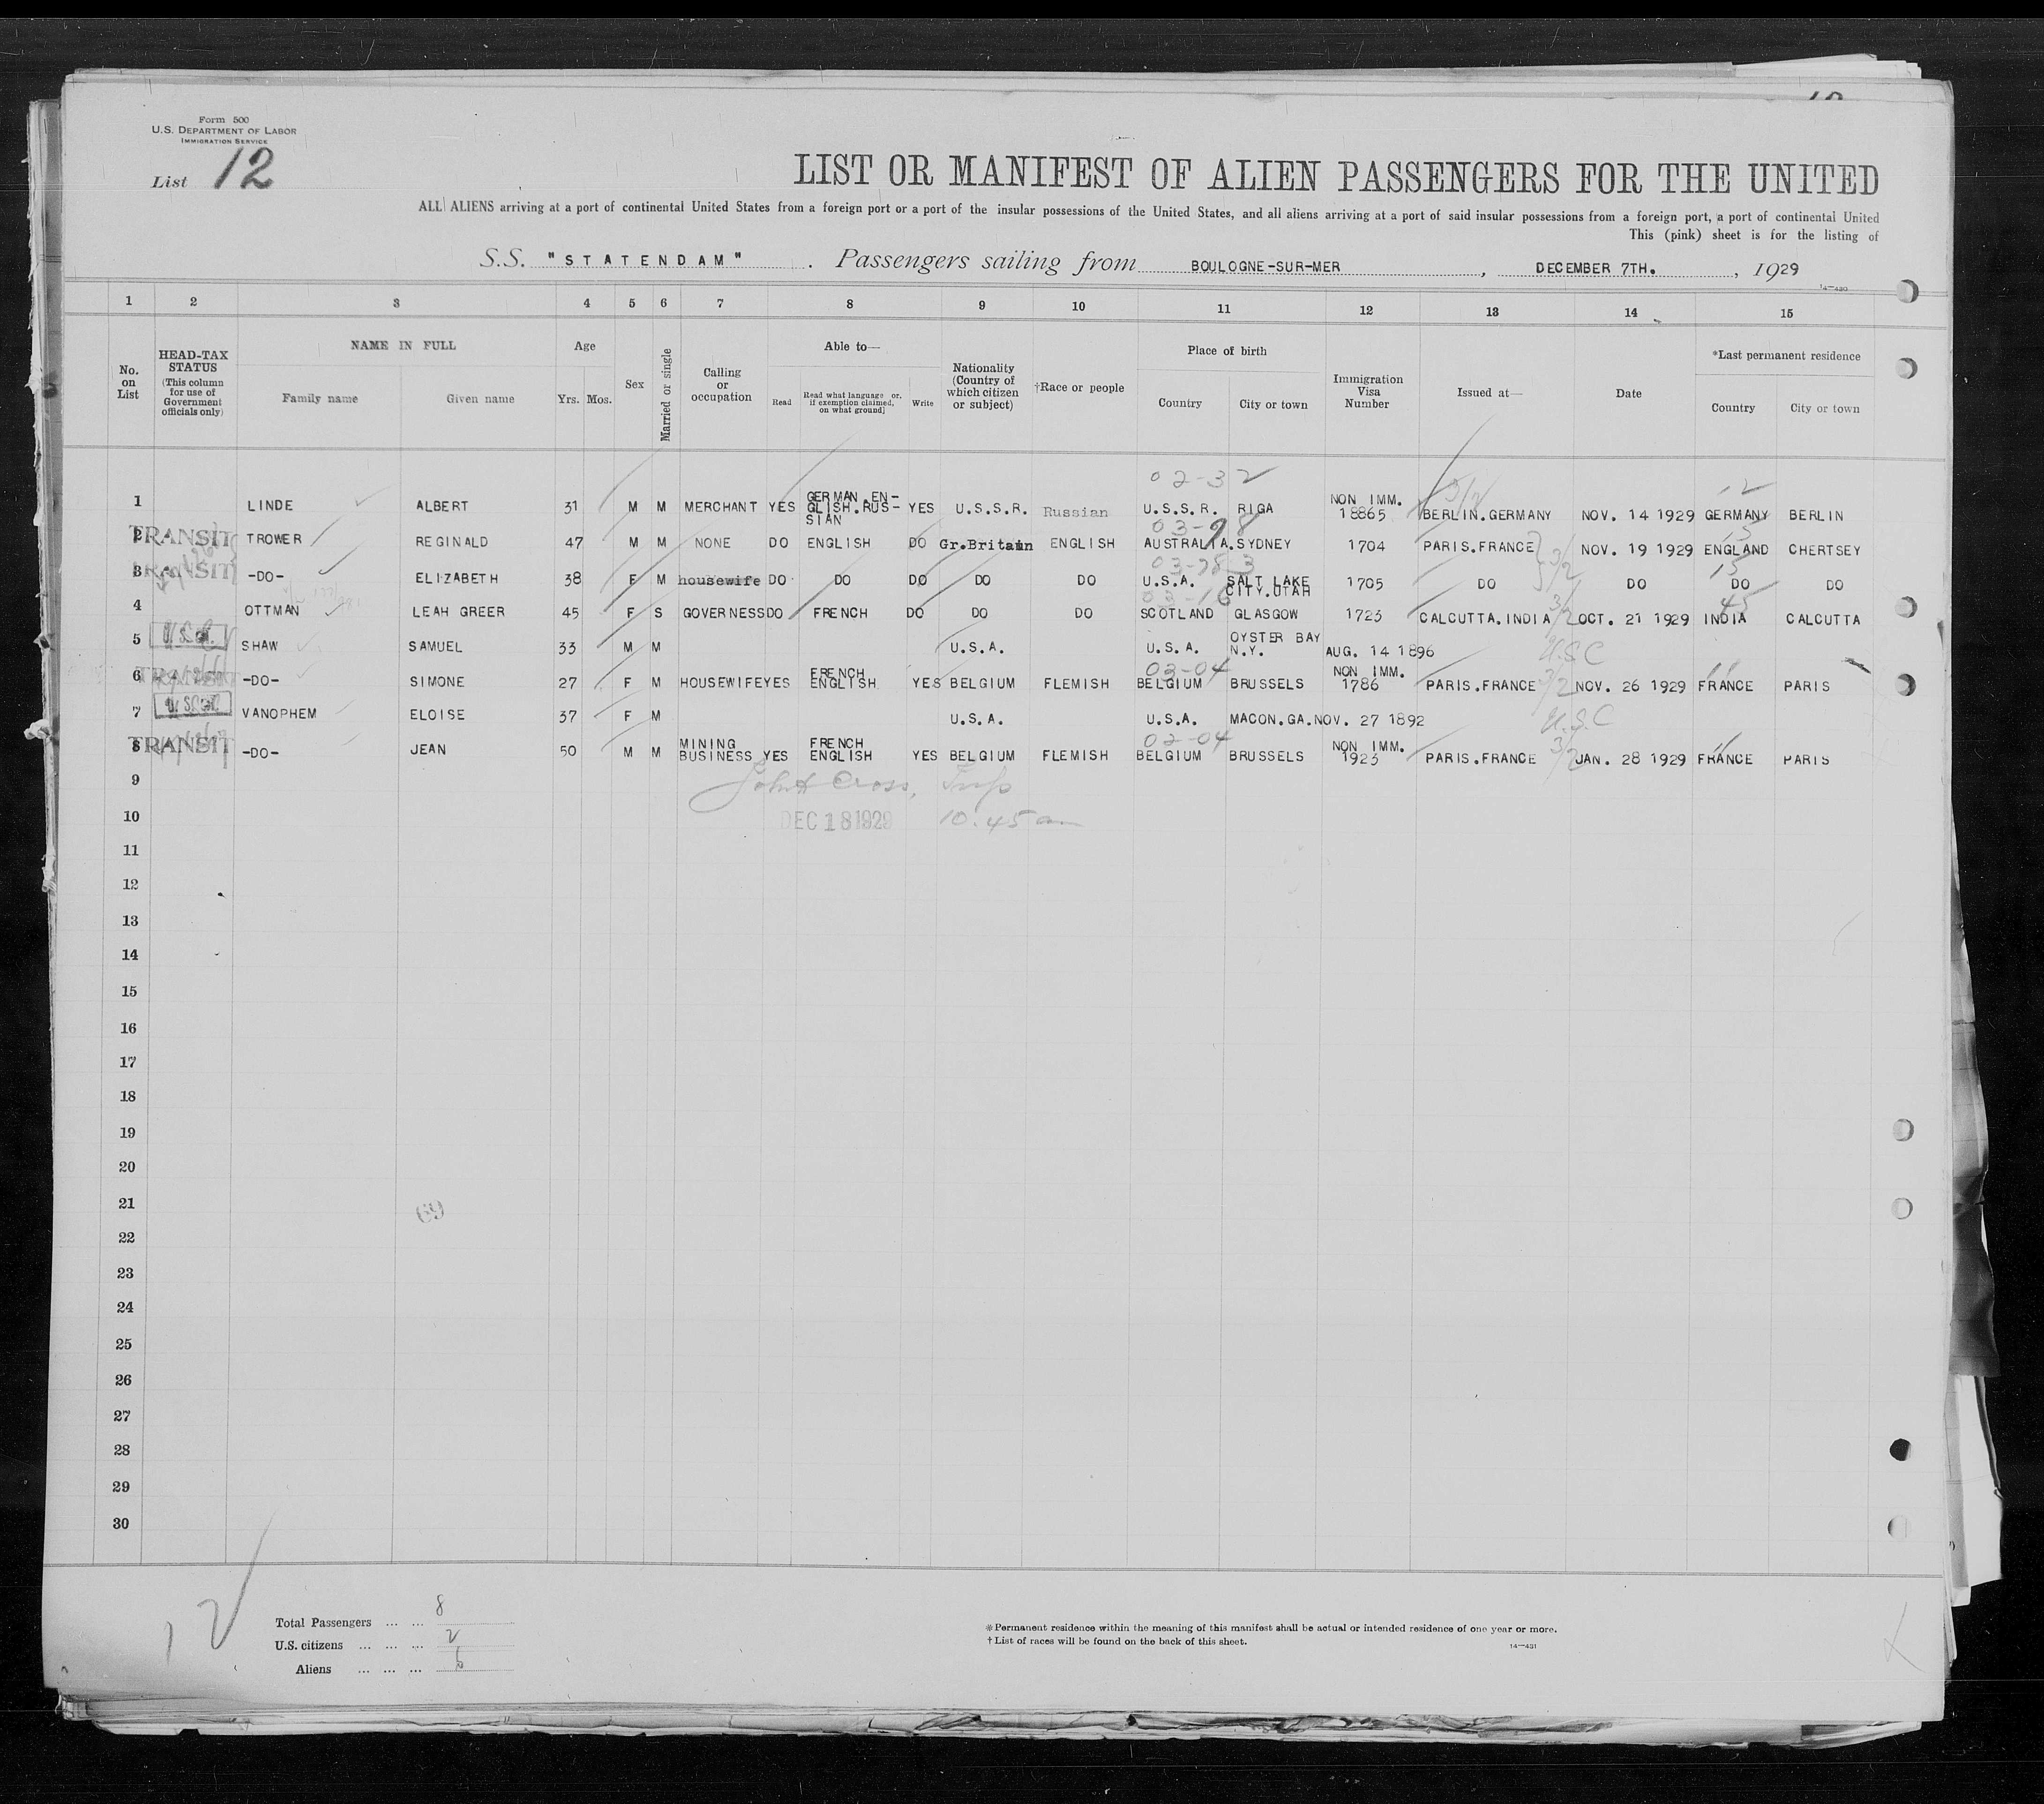 Form 500
U.S. DEPARTMENT OF LABOR
IMMIGRATION SERVICE
List 12
LIST OR MANIFEST OF ALIEN PASSENGERS FOR THE UNITED
ALL ALIENS arriving at a port of continental United States from a foreign port or a port of the insular possessions of the United States, and all aliens arriving at a port of said insular possessions from a foreign port, a port of continental United
This (pink) sheet is for the listing of
S.S. "STATENDAM". Passengers sailing from BOULOGNE-SUR-MER, DECEMBER 7TH., 1929
14-430
1 2 3 4 5 6 7 8 9 10 11 12 13 14 15
No. on List
HEAD-TAX STATUS (This column for use of Government officials only)
NAME IN FULL
Family name Given name
Age
Yrs. Mos.
Sex
Married or single
Calling or occupation
Able to—
Read Read what language or, if exemption claimed, on what ground] Write
Nationality (Country of which citizen or subject)
†Race or people
Place of birth
Country City or town
Immigration Visa Number
Issued at—
Date
*Last permanent residence
Country City or town
02-32 3/2 12
1 LINDE ALBERT 31 M M MERCHANT YES GERMAN.EN-GLISH.RUS-SIAN YES U.S.S.R. Russian U.S.S.R. RIGA NON IMM. 18865 BERLIN.GERMANY NOV. 14 1929 GERMANY BERLIN
03-98
2 TRANSIT TROWER REGINALD 47 M M NONE DO ENGLISH DO Gr.Britain ENGLISH AUSTRALIA.SYDNEY 1704 PARIS.FRANCE NOV. 19 1929 ENGLAND CHERTSEY
3/2 13
3 TRANSIT -DO- ELIZABETH 38 F M housewife DO DO DO DO DO U.S.A. SALT LAKE CITY.UTAH 1705 DO DO DO DO
03-16 3/2 45
4 OTTMAN LEAH GREER 45 F S GOVERNESS DO FRENCH DO DO DO SCOTLAND GLASGOW 1723 CALCUTTA.INDIA OCT. 21 1929 INDIA CALCUTTA
5 SHAW SAMUEL 33 M M U.S.A. U.S.A. OYSTER BAY N.Y. AUG. 14 1896 U.S.C
03-04 3/2 11
6 TRANSIT -DO- SIMONE 27 F M HOUSEWIFE YES FRENCH ENGLISH YES BELGIUM FLEMISH BELGIUM BRUSSELS NON IMM. 1786 PARIS.FRANCE NOV. 26 1929 FRANCE PARIS
7 VANOPHEM ELOISE 37 F M U.S.A. U.S.A. MACON.GA. NOV. 27 1892 U.S.C
02-04 3/2 11
8 TRANSIT -DO- JEAN 50 M M MINING BUSINESS YES FRENCH ENGLISH YES BELGIUM FLEMISH BELGIUM BRUSSELS NON IMM. 1923 PARIS.FRANCE JAN. 28 1929 FRANCE PARIS
9 John Cross, Insp
10 DEC 18 1929 10.45 am
11
12
13
14
15
16
17
18
19
20
21
69
22
23
24
25
26
27
28
29
30
12
Total Passengers ... ... 8
U.S. citizens ... ... ... 2
Aliens ... ... ... 6
*Permanent residence within the meaning of this manifest shall be actual or intended residence of one year or more.
†List of races will be found on the back of this sheet.
14-431